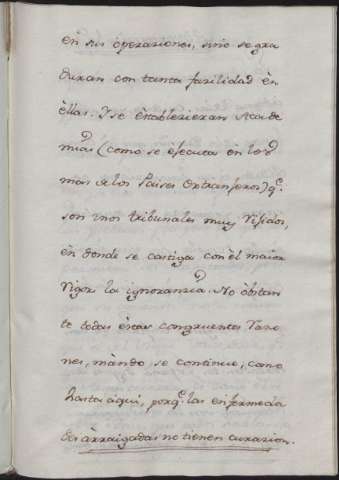 èn sus operaziones, sino se gra
duran con tanta fazilidad èn
èllas. Y se èstablezieran Acade
mias (como se efecuta èn lo
mas de los Paises extranferos) q.e
son unos tribunales muy rifidos,
èn donde se castiga con èl maior
vigor la ignoranzia. No òbstan
te todas èstas congruentes razo
nes, mando, se continue, como
hasta aqui, porq.e las enfermeda
des àrraigadas no tienen curazion.